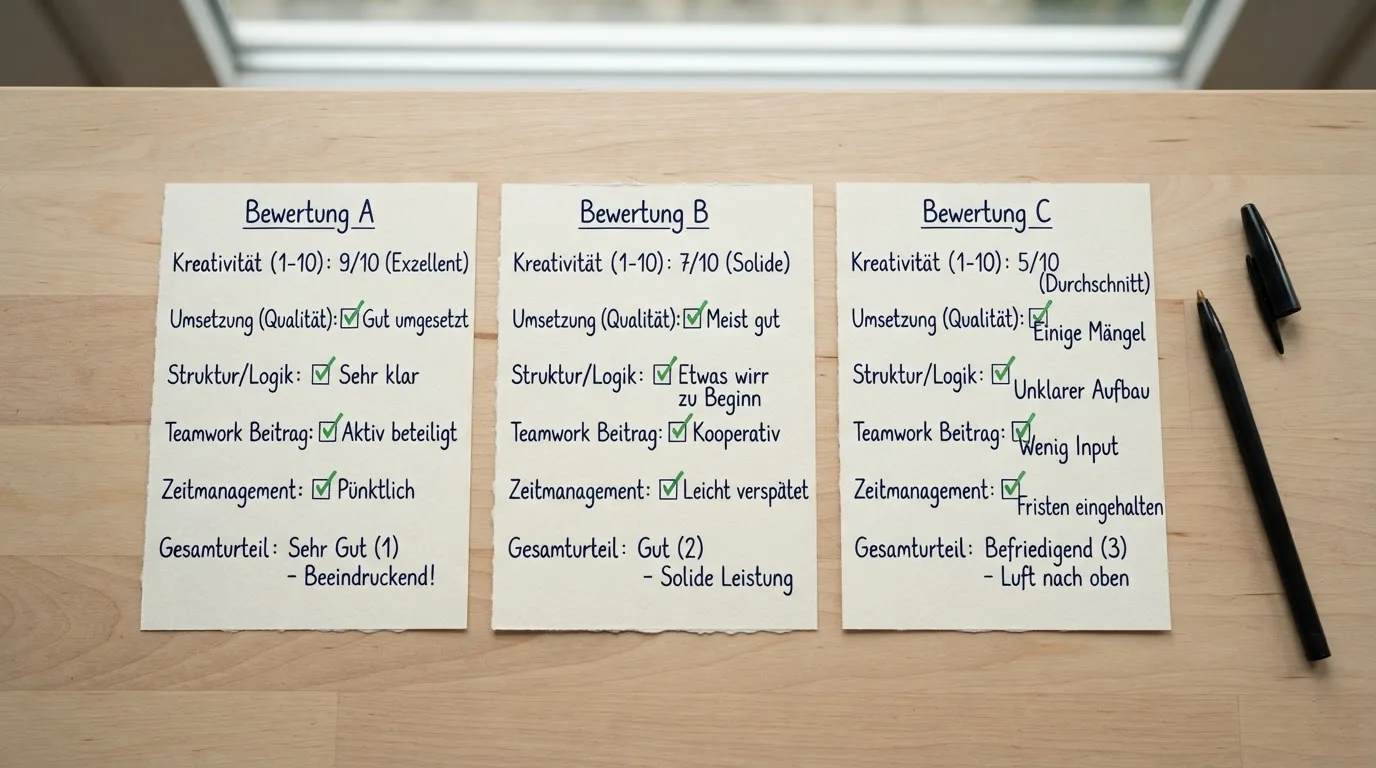 Bewertung A
Kreativität (1-10): 9/10 (Exzellent)
Umsetzung (Qualität): ☑ Gut umgesetzt
Struktur/Logik: ☑ Sehr klar
Teamwork Beitrag: ☑ Aktiv beteiligt
Zeitmanagement: ☑ Pünktlich
Gesamturteil: Sehr Gut (1)
- Beeindruckend!
Bewertung B
Kreativität (1-10): 7/10 (Solide)
Umsetzung (Qualität): ☑ Meist gut
Struktur/Logik: ☑ Etwas wirr
zu Beginn
Teamwork Beitrag: ☑ Kooperativ
Zeitmanagement: ☑ Leicht verspätet
Gesamturteil: Gut (2)
- Solide Leistung
Bewertung C
Kreativität (1-10): 5/10
(Durchschnitt)
Umsetzung (Qualität): ☑
Einige Mängel
Struktur/Logik: ☑
Unklarer Aufbau
Teamwork Beitrag: ☑
Wenig Input
Zeitmanagement: ☑
Fristen eingehalten
Gesamturteil: Befriedigend (3)
- Luft nach oben